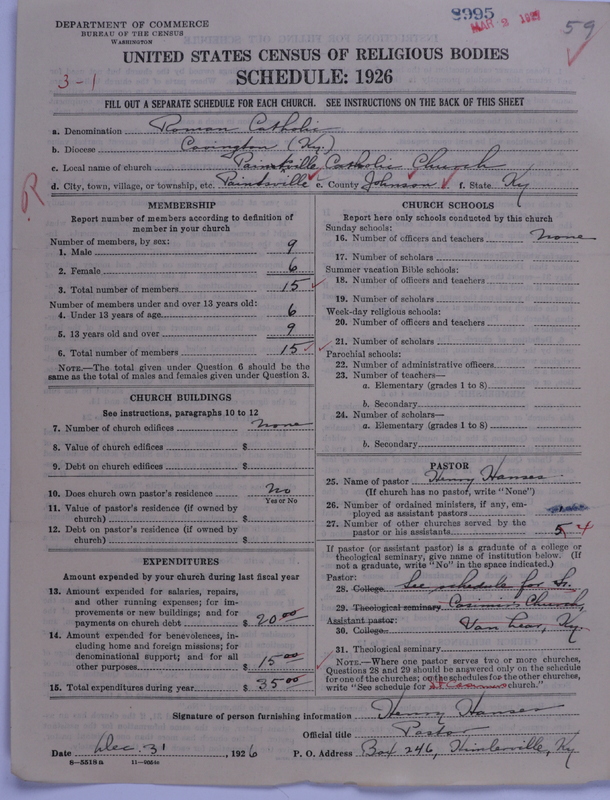 DEPARTMENT OF COMMERCE
BUREAU OF THE CENSUS
WASHINGTON
8995
MAR 2 1927
59
3-1
UNITED STATES CENSUS OF RELIGIOUS BODIES
SCHEDULE: 1926
FILL OUT A SEPARATE SCHEDULE FOR EACH CHURCH. SEE INSTRUCTIONS ON THE BACK OF THIS SHEET
a. Denomination Roman Catholic
b. Diocese Covington (Ky.)
c. Local name of church Paintsville Catholic Church
d. City, town, village, or township, etc. Paintsville e. County Johnson f. State Ky
R
MEMBERSHIP
Report number of members according to definition of
member in your church
Number of members, by sex:
1. Male 9
2. Female 6
3. Total number of members 15
Number of members under and over 13 years old:
4. Under 13 years of age 6
5. 13 years old and over 9
6. Total number of members 15
NOTE.—The total given under Question 6 should be the
same as the total of males and females given under Question 3.
CHURCH BUILDINGS
See instructions, paragraphs 10 to 12
7. Number of church edifices none
8. Value of church edifices $
9. Debt on church edifices $
10. Does church own pastor's residence No
Yes or No
11. Value of pastor's residence (if owned by
church) $
12. Debt on pastor's residence (if owned by
church) $
EXPENDITURES
Amount expended by your church during last fiscal year
13. Amount expended for salaries, repairs,
and other running expenses; for im-
provements or new buildings; and for
payments on church debt $ 20.00
14. Amount expended for benevolences, in-
cluding home and foreign missions; for
denominational support; and for all
other purposes $ 15.00
15. Total expenditures during year $ 35.00
CHURCH SCHOOLS
Report here only schools conducted by this church
Sunday schools:
16. Number of officers and teachers none
17. Number of scholars
Summer vacation Bible schools:
18. Number of officers and teachers
19. Number of scholars
Week-day religious schools:
20. Number of officers and teachers
21. Number of scholars
Parochial schools:
22. Number of administrative officers
23. Number of teachers—
a. Elementary (grades 1 to 8)
b. Secondary
24. Number of scholars—
a. Elementary (grades 1 to 8)
b. Secondary
PASTOR
25. Name of pastor Henry Hanses
(If church has no pastor, write "None")
26. Number of ordained ministers, if any, em-
ployed as assistant pastors
27. Number of other churches served by the
pastor or his assistants 5 4
If pastor (or assistant pastor) is a graduate of a college or
theological seminary, give name of institution below. (If
not a graduate, write "No" in the space indicated.)
Pastor:
28. College See schedule for St.
29. Theological seminary Casimirs Church,
Assistant pastor:
30. College Van Lear, Ky.
31. Theological seminary
NOTE.—Where one pastor serves two or more churches,
Questions 28 and 29 should be answered only on the schedule
for one of the churches; on the schedules for the other churches,
write "See schedule for St Casimirs church."
Signature of person furnishing information Henry Hanses
Official title Pastor
Date Dec. 31, 1926 P. O. Address Box 246, Ky
8—5518a 11—9054